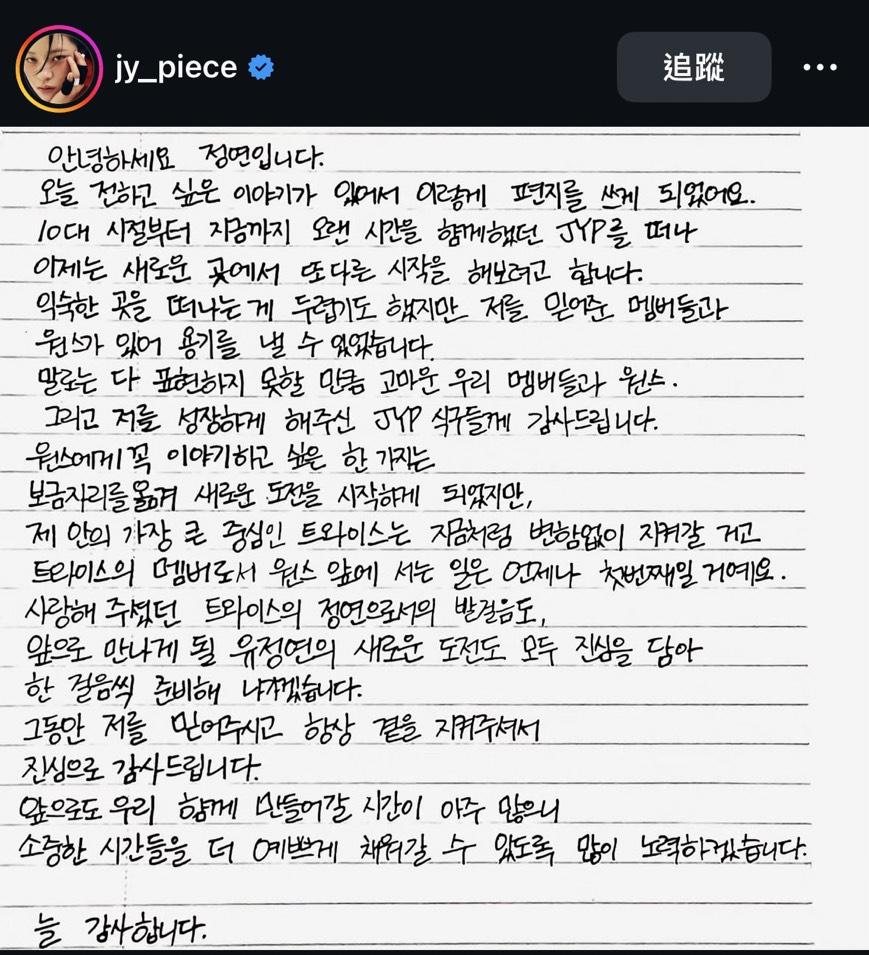 jy_piece
追蹤
안녕하세요 정연입니다.
오늘 전하고 싶은 이야기가 있어서 이렇게 편지를 쓰게 되었어요.
10대 시절부터 지금까지 오랜 시간을 함께했던 JYP를 떠나
이제는 새로운 곳에서 또다른 시작을 해보려고 합니다.
익숙한 곳을 떠나는게 두렵기도 했지만 저를 믿어준 멤버들과
원스가 있어 용기를 낼 수 있었습니다.
말로는 다 표현하지 못할 만큼 고마운 우리 멤버들과 원스.
그리고 저를 성장하게 해주신 JYP 식구들께 감사드립니다.
원스에게 꼭 이야기하고 싶은 한 가지는
보금자리를 옮겨 새로운 도전을 시작하게 되었지만,
제 안의 가장 큰 중심인 트와이스는 지금처럼 변함없이 지켜갈 거고
트와이스의 멤버로서 원스 앞에 서는 일은 언제나 첫번째일 거예요.
사랑해 주셨던 트와이스의 정연으로서의 발걸음도,
앞으로 만나게 될 유정연의 새로운 도전도 모두 진심을 담아
한 걸음씩 준비해 나가겠습니다.
그동안 저를 믿어주시고 항상 곁을 지켜주셔서
진심으로 감사드립니다.
앞으로도 우리 함께 만들어갈 시간이 아주 많으니
소중한 시간들을 더 예쁘게 채워갈 수 있도록 많이 노력하겠습니다.
늘 감사합니다.